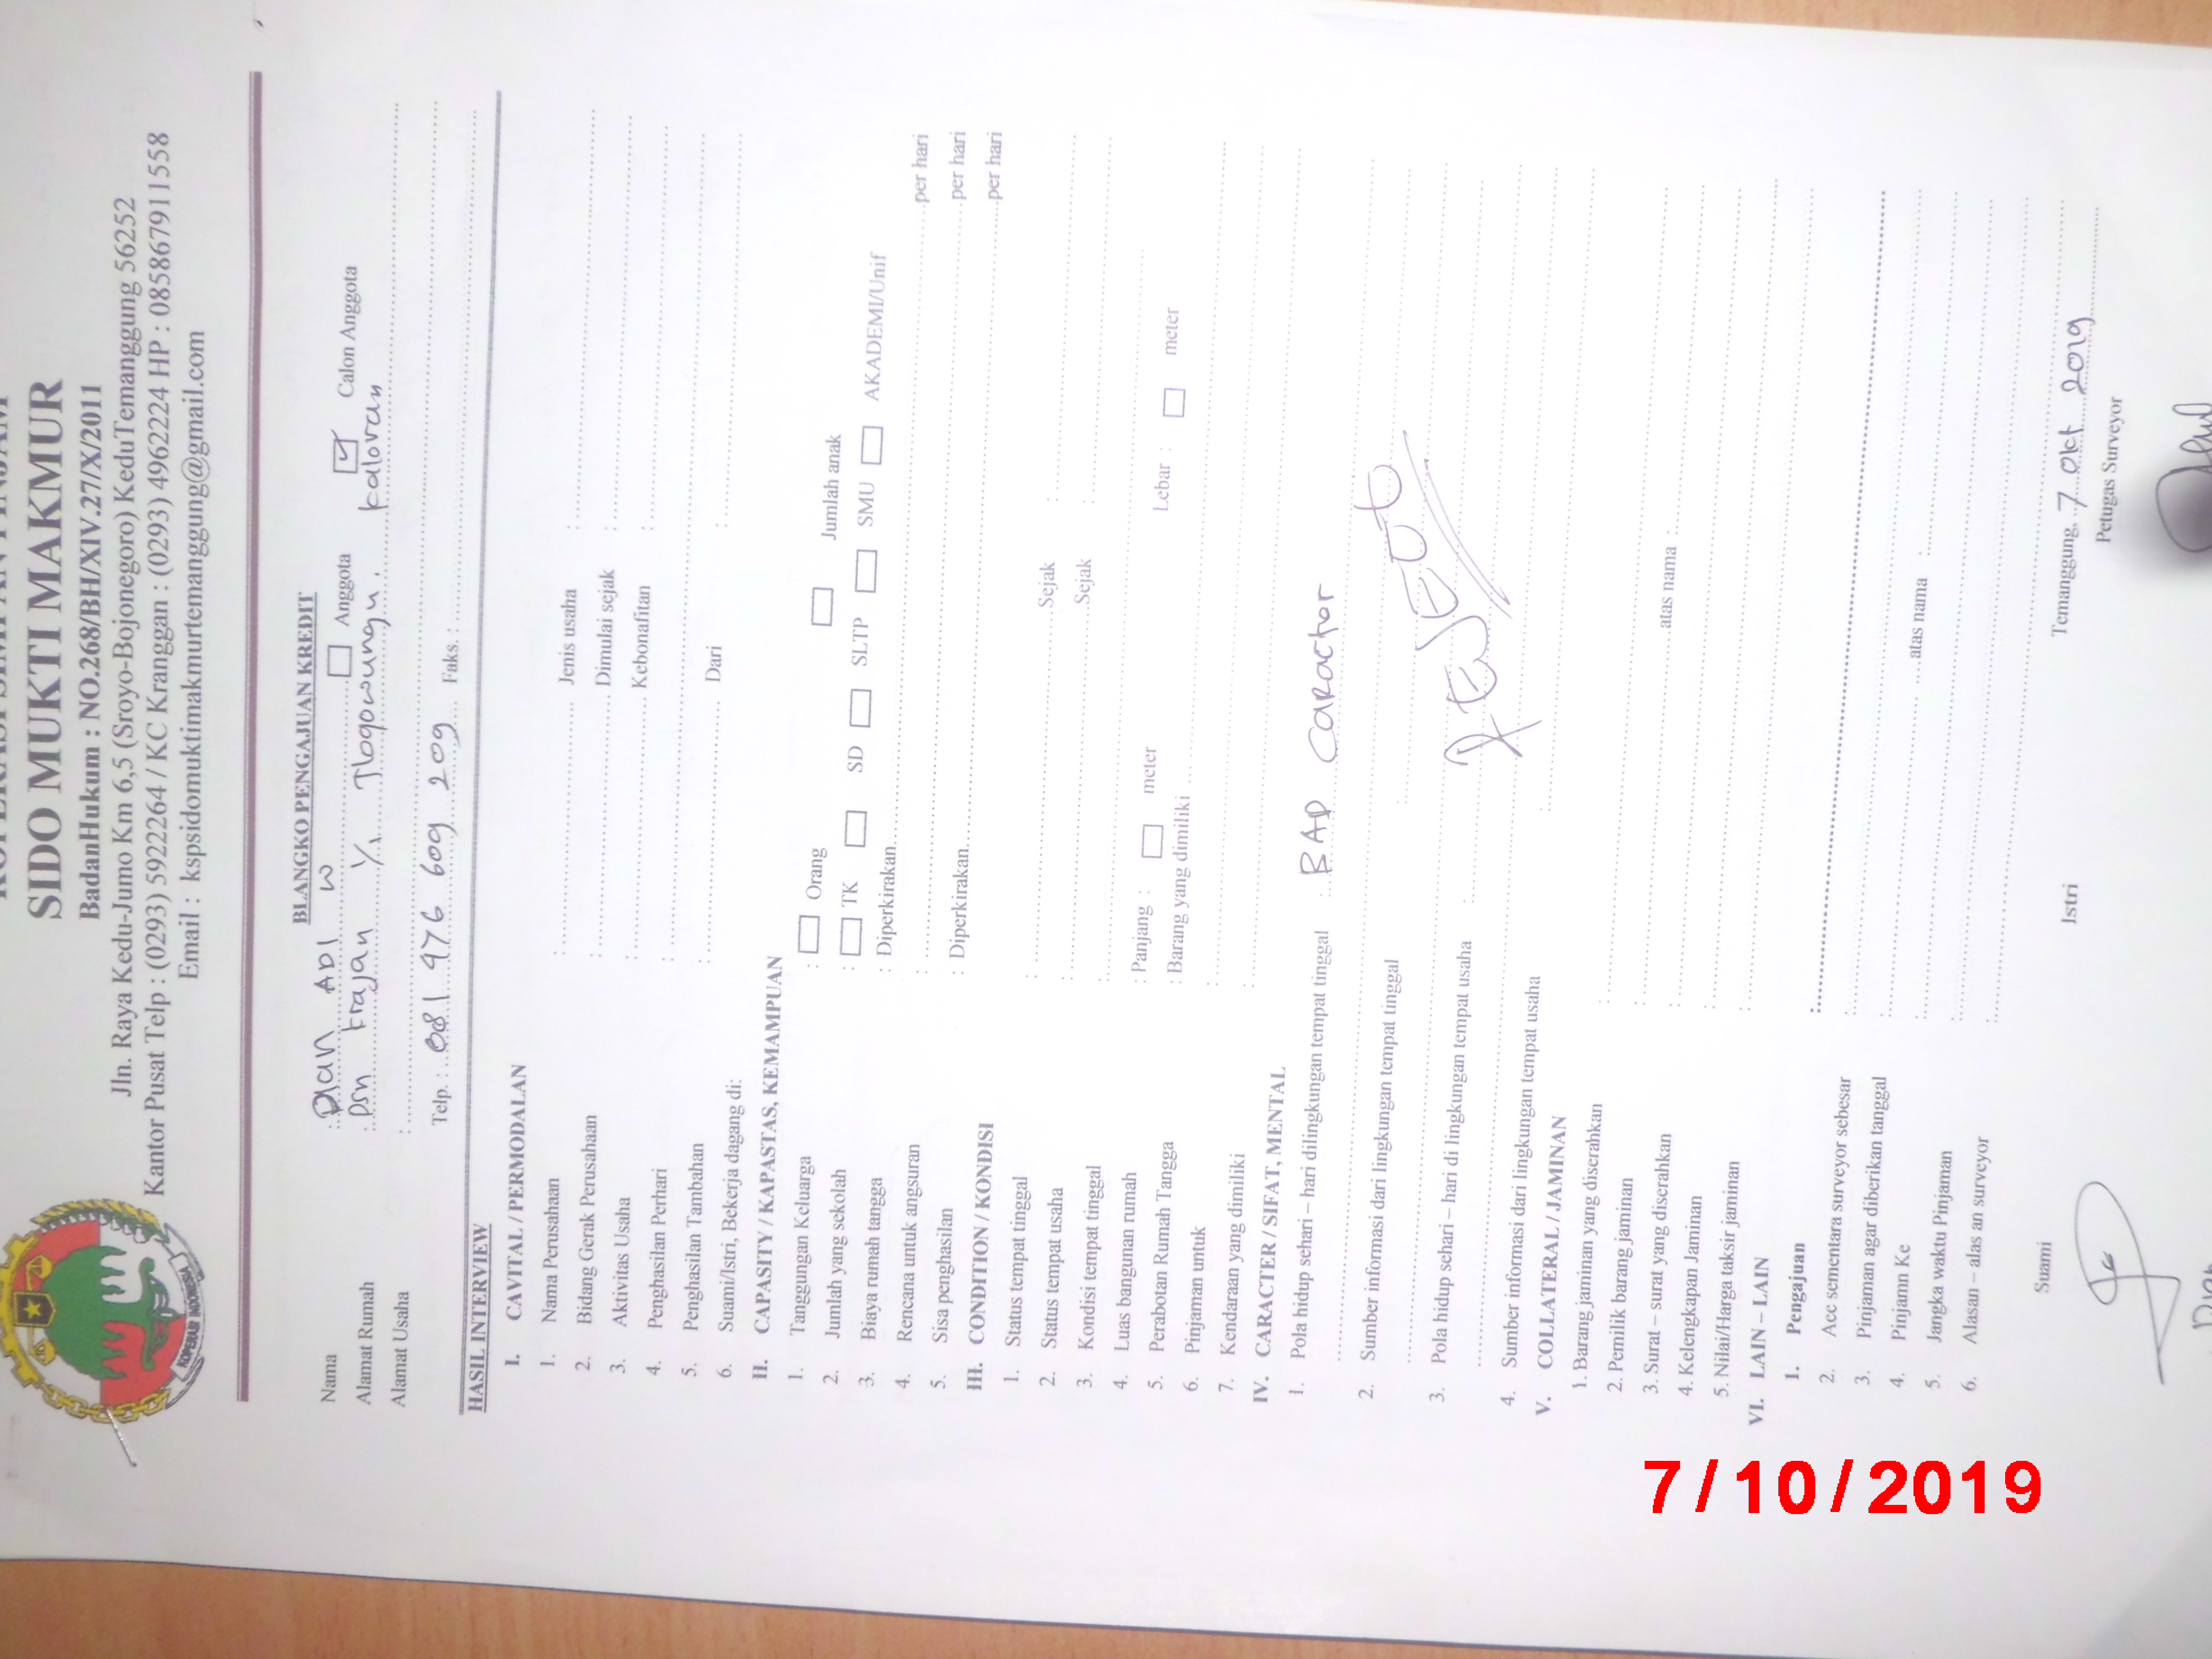 SIDO MUKTI MAKMUR
BadanHukum : NO.268/BH/XIV.27/X/2011
Jln. Raya Kedu-Jumo Km 6,5 (Sroyo-Bojonegoro) KeduTemanggung 56252
Kantor Pusat Telp : (0293) 5922264 / KC Kranggan : (0293) 4962224 HP : 085867911558
Email : kspsidomuktimakmurtemanggung@gmail.com
KOPERASI INDONESIA
BLANGKO PENGAJUAN KREDIT
Nama : DIAN ADI W Anggota Calon Anggota
Alamat Rumah : Dsn krajan 1/1 Tlogowungu. kaloran
Alamat Usaha :
Telp. : 081 976 609 209 Faks :
HASIL INTERVIEW
I. CAVITAL / PERMODALAN
1. Nama Perusahaan : Jenis usaha :
2. Bidang Gerak Perusahaan : Dimulai sejak :
3. Aktivitas Usaha : Kebonafitan :
4. Penghasilan Perhari :
5. Penghasilan Tambahan : Dari :
6. Suami/Istri, Bekerja dagang di:
II. CAPASITY / KAPASTAS, KEMAMPUAN
1. Tanggungan Keluarga : Orang Jumlah anak
2. Jumlah yang sekolah : TK SD SLTP SMU AKADEMI/Unif
3. Biaya rumah tangga : Diperkirakan per hari
4. Rencana untuk angsuran : per hari
5. Sisa penghasilan : Diperkirakan per hari
III. CONDITION / KONDISI
1. Status tempat tinggal : Sejak :
2. Status tempat usaha : Sejak :
3. Kondisi tempat tinggal :
4. Luas bangunan rumah : Panjang : meter Lebar : meter
5. Perabotan Rumah Tangga : Barang yang dimiliki
6. Pinjaman untuk :
7. Kendaraan yang dimiliki :
IV. CARACTER / SIFAT, MENTAL
1. Pola hidup sehari – hari dilingkungan tempat tinggal : BAD Caracter
2. Sumber informasi dari lingkungan tempat tinggal :
3. Pola hidup sehari – hari di lingkungan tempat usaha : Reject
4. Sumber informasi dari lingkungan tempat usaha :
V. COLLATERAL / JAMINAN
1. Barang jaminan yang diserahkan :
2. Pemilik barang jaminan :
3. Surat – surat yang diserahkan : atas nama :
4. Kelengkapan Jaminan :
5. Nilai/Harga taksir jaminan :
VI. LAIN – LAIN
1. Pengajuan :
2. Acc sementara surveyor sebesar :
3. Pinjaman agar diberikan tanggal :
4. Pinjamn Ke : atas nama :
5. Jangka waktu Pinjaman :
6. Alasan – alas an surveyor :
Temanggung, 7 Okt 2019
Suami Istri Petugas Surveyor
7/10/2019